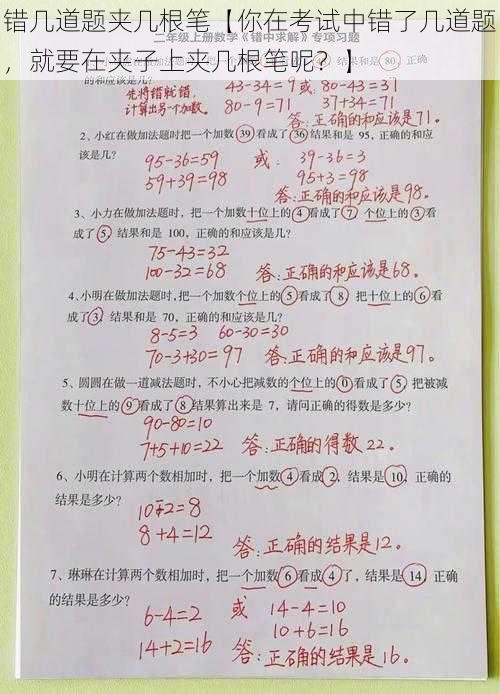 错几道题夹几根笔【你在考试中错了几道题
，就要在夹子上夹几根笔呢？】
二年级上册数学《错中求解》专项习题
80，正确
的和应该是几？
先将错就错，
计算出另一个加数。
43-34=9 或：80-43=37
80-9=71 37+34=71
答：正确的和应该是71。
2、小红在做加法题时把一个加数39看成了36结果和是 95，正确的和应
该是几？
95-36=59 或：39-36=3
59+39=98 95+3=98
答：正确的和应该是98。
3、小力在做加法题时，把一个加数十位上的4看成了7 个位上的3看
成了5，结果和是 100，正确的和应该是几？
75-43=32
100-32=68 答：正确的和应该是68。
4、小明在做加法题时，把一个加数个位上的5看成了8 把十位上的6看
成了3，结果和是 70，正确的和应该是几？
8-5=3 60-30=30
70-3+30=97 答：正确的和应该是97。
5、圆圆在做一道减法题时，不小心把减数的个位上的0看成了5，把被减
数十位上的9看成了8结果算出来是 7，请问正确的得数是多少？
90-80=10
7+5+10=22 答：正确的得数22。
6、小明在计算两个数相加时，把一个加数4看成2，结果是10，正确的
结果是多少？
10-2=8
8+4=12
答：正确的结果是12。
7、琳琳在计算两个数相加时，把一个加数6看成4了，结果是14，正确
的结果是多少？
6-4=2 或 14-4=10
14+2=16 10+6=16
答：正确的结果是16。